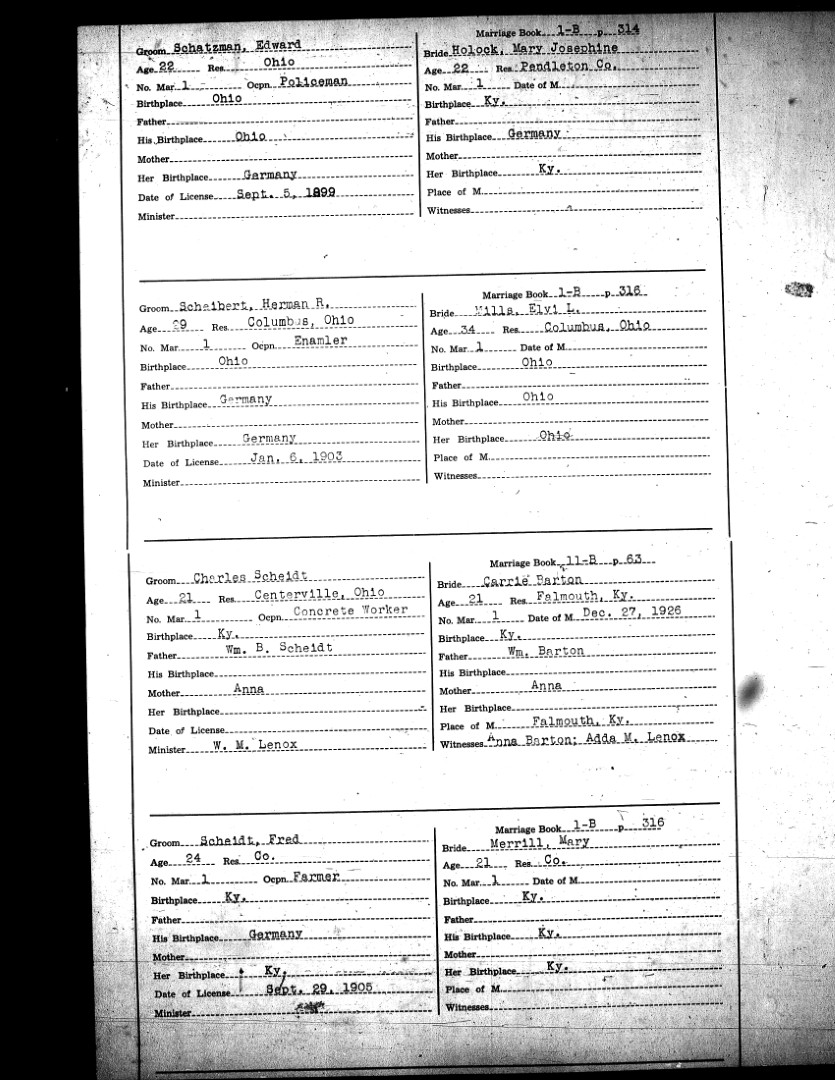 Marriage Book 1-B p. 314
Groom Schatzman, Edward
Bride Holock, Mary Josephine
Age 22 Res. Ohio
Age 22 Res. Pendleton Co.
No. Mar. 1 Ocpn. Policeman
No. Mar. 1 Date of M.
Birthplace Ohio
Birthplace Ky.
Father
Father
His Birthplace Ohio
His Birthplace Germany
Mother
Mother
Her Birthplace Germany
Her Birthplace Ky.
Date of License Sept. 5, 1899
Place of M.
Minister
Witnesses
Marriage Book 1-B p. 316
Groom Scheibert, Herman R.
Bride Mills, Elvi L.
Age 29 Res. Columbus, Ohio
Age 34 Res. Columbus, Ohio
No. Mar. 1 Ocpn. Enamler
No. Mar. 1 Date of M.
Birthplace Ohio
Birthplace Ohio
Father
Father
His Birthplace Germany
His Birthplace Ohio
Mother
Mother
Her Birthplace Germany
Her Birthplace Ohio
Date of License Jan. 6, 1903
Place of M.
Minister
Witnesses
Marriage Book 11-B p. 63
Groom Charles Scheidt
Bride Carrie Barton
Age 21 Res. Centerville, Ohio
Age 21 Res. Falmouth, Ky.
No. Mar. 1 Ocpn. Concrete Worker
No. Mar. 1 Date of M. Dec. 27, 1926
Birthplace Ky.
Birthplace Ky.
Father Wm. B. Scheidt
Father Wm. Barton
His Birthplace
His Birthplace
Mother Anna
Mother Anna
Her Birthplace
Her Birthplace
Date of License
Place of M. Falmouth, Ky.
Minister W. M. Lenox
Witnesses Anna Barton; Adda M. Lenox
Marriage Book 1-B p. 316
Groom Scheidt, Fred
Bride Merrill, Mary
Age 24 Res. Co.
Age 21 Res. Co.
No. Mar. 1 Ocpn. Farmer
No. Mar. 1 Date of M.
Birthplace Ky.
Birthplace Ky.
Father
Father
His Birthplace Germany
His Birthplace Ky.
Mother
Mother
Her Birthplace Ky.
Her Birthplace Ky.
Date of License Sept. 29, 1905
Place of M.
Minister
Witnesses